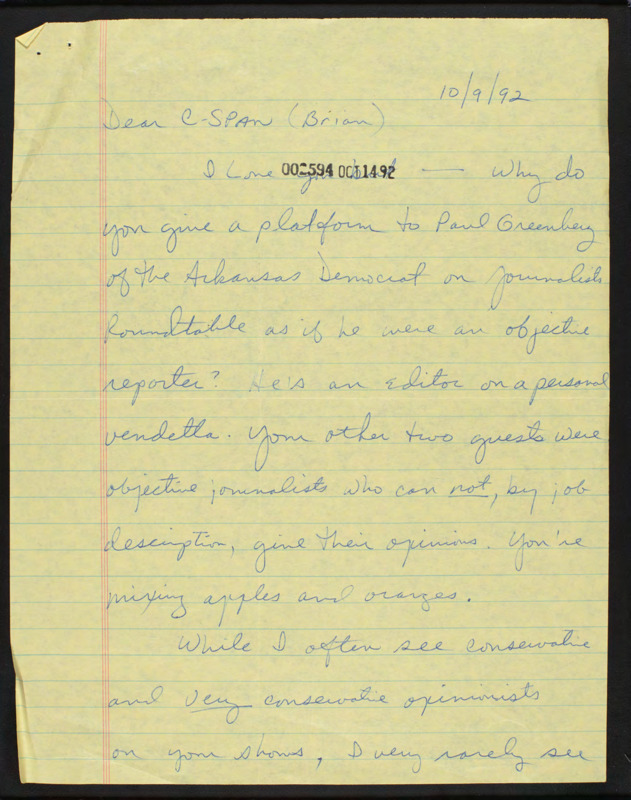 10/9/92
Dear C-SPAN (Brian)
I Love you but — Why do
002594 OCT 14 92
you give a platform to Paul Greenberg
of the Arkansas Democrat on journalists
Roundtable as if he were an objective
reporter? He's an editor on a personal
vendetta. Your other two guests were
objective journalists who can not, by job
description, give their opinions. You're
mixing apples and oranges.
While I often see conservative
and very conservative opinionists
on your shows, I very rarely see